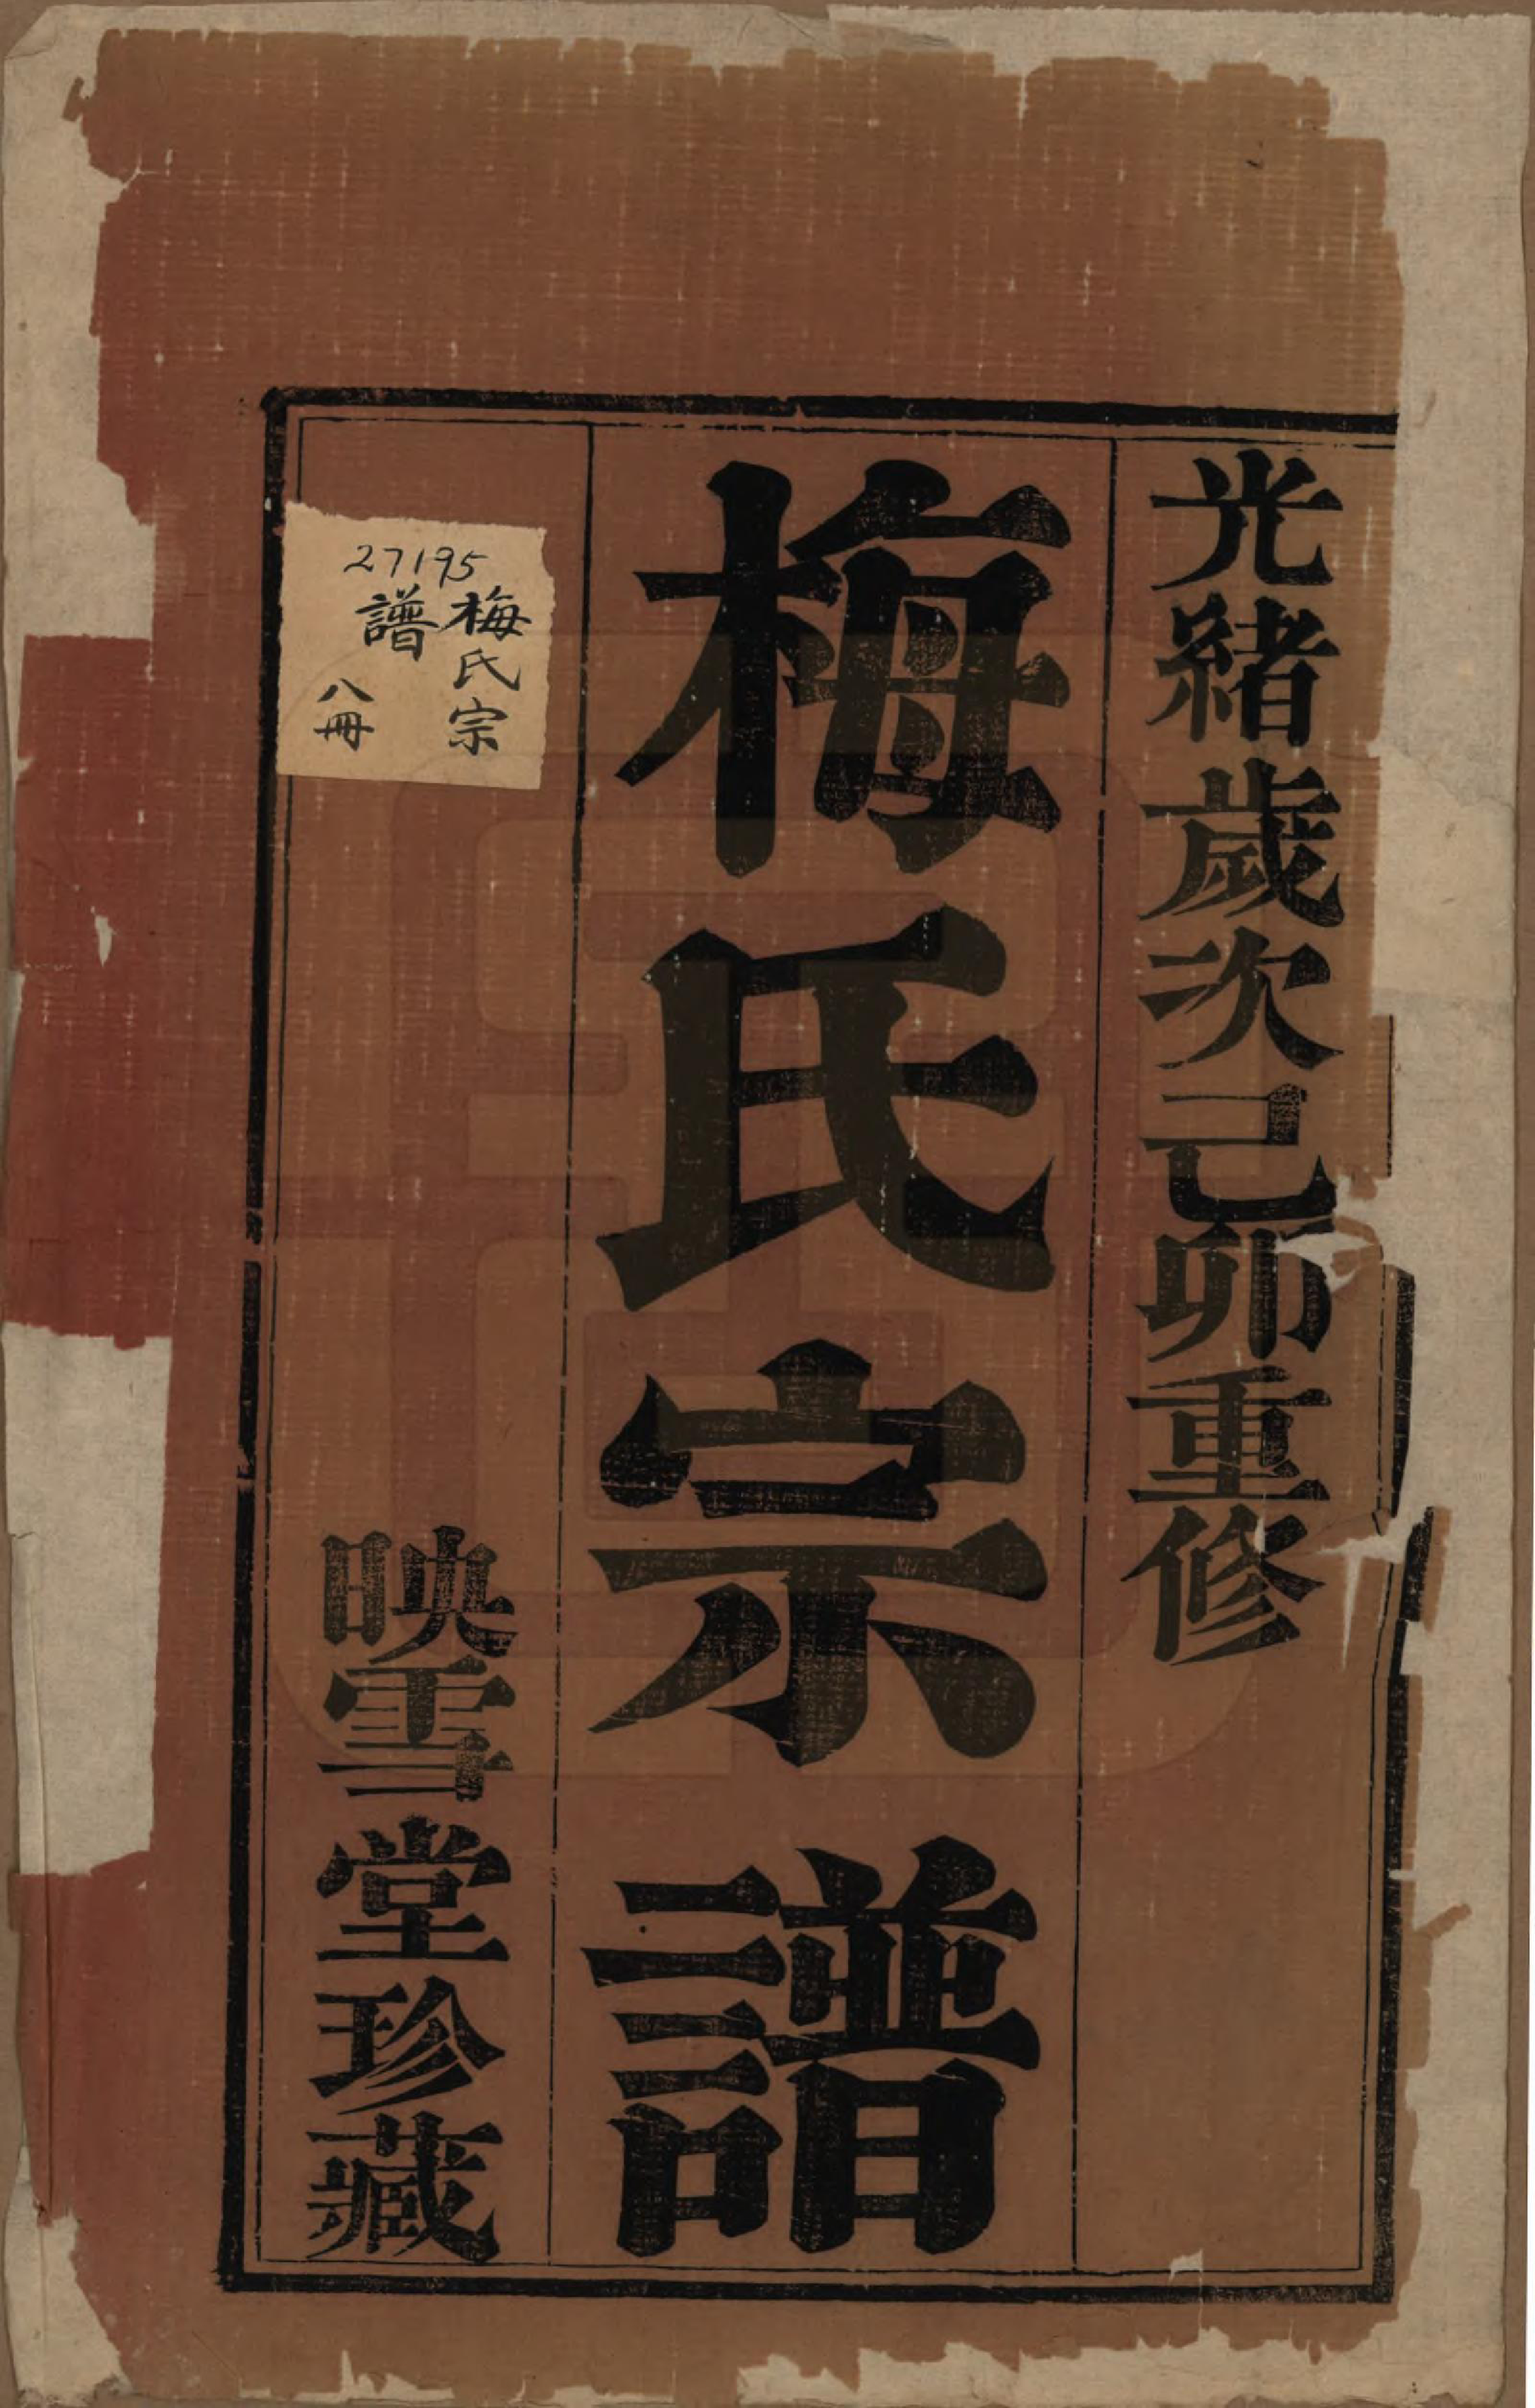 光緒歲次己卯重修
梅氏宗譜
映雪堂珍藏
27195
梅氏宗
譜
八冊